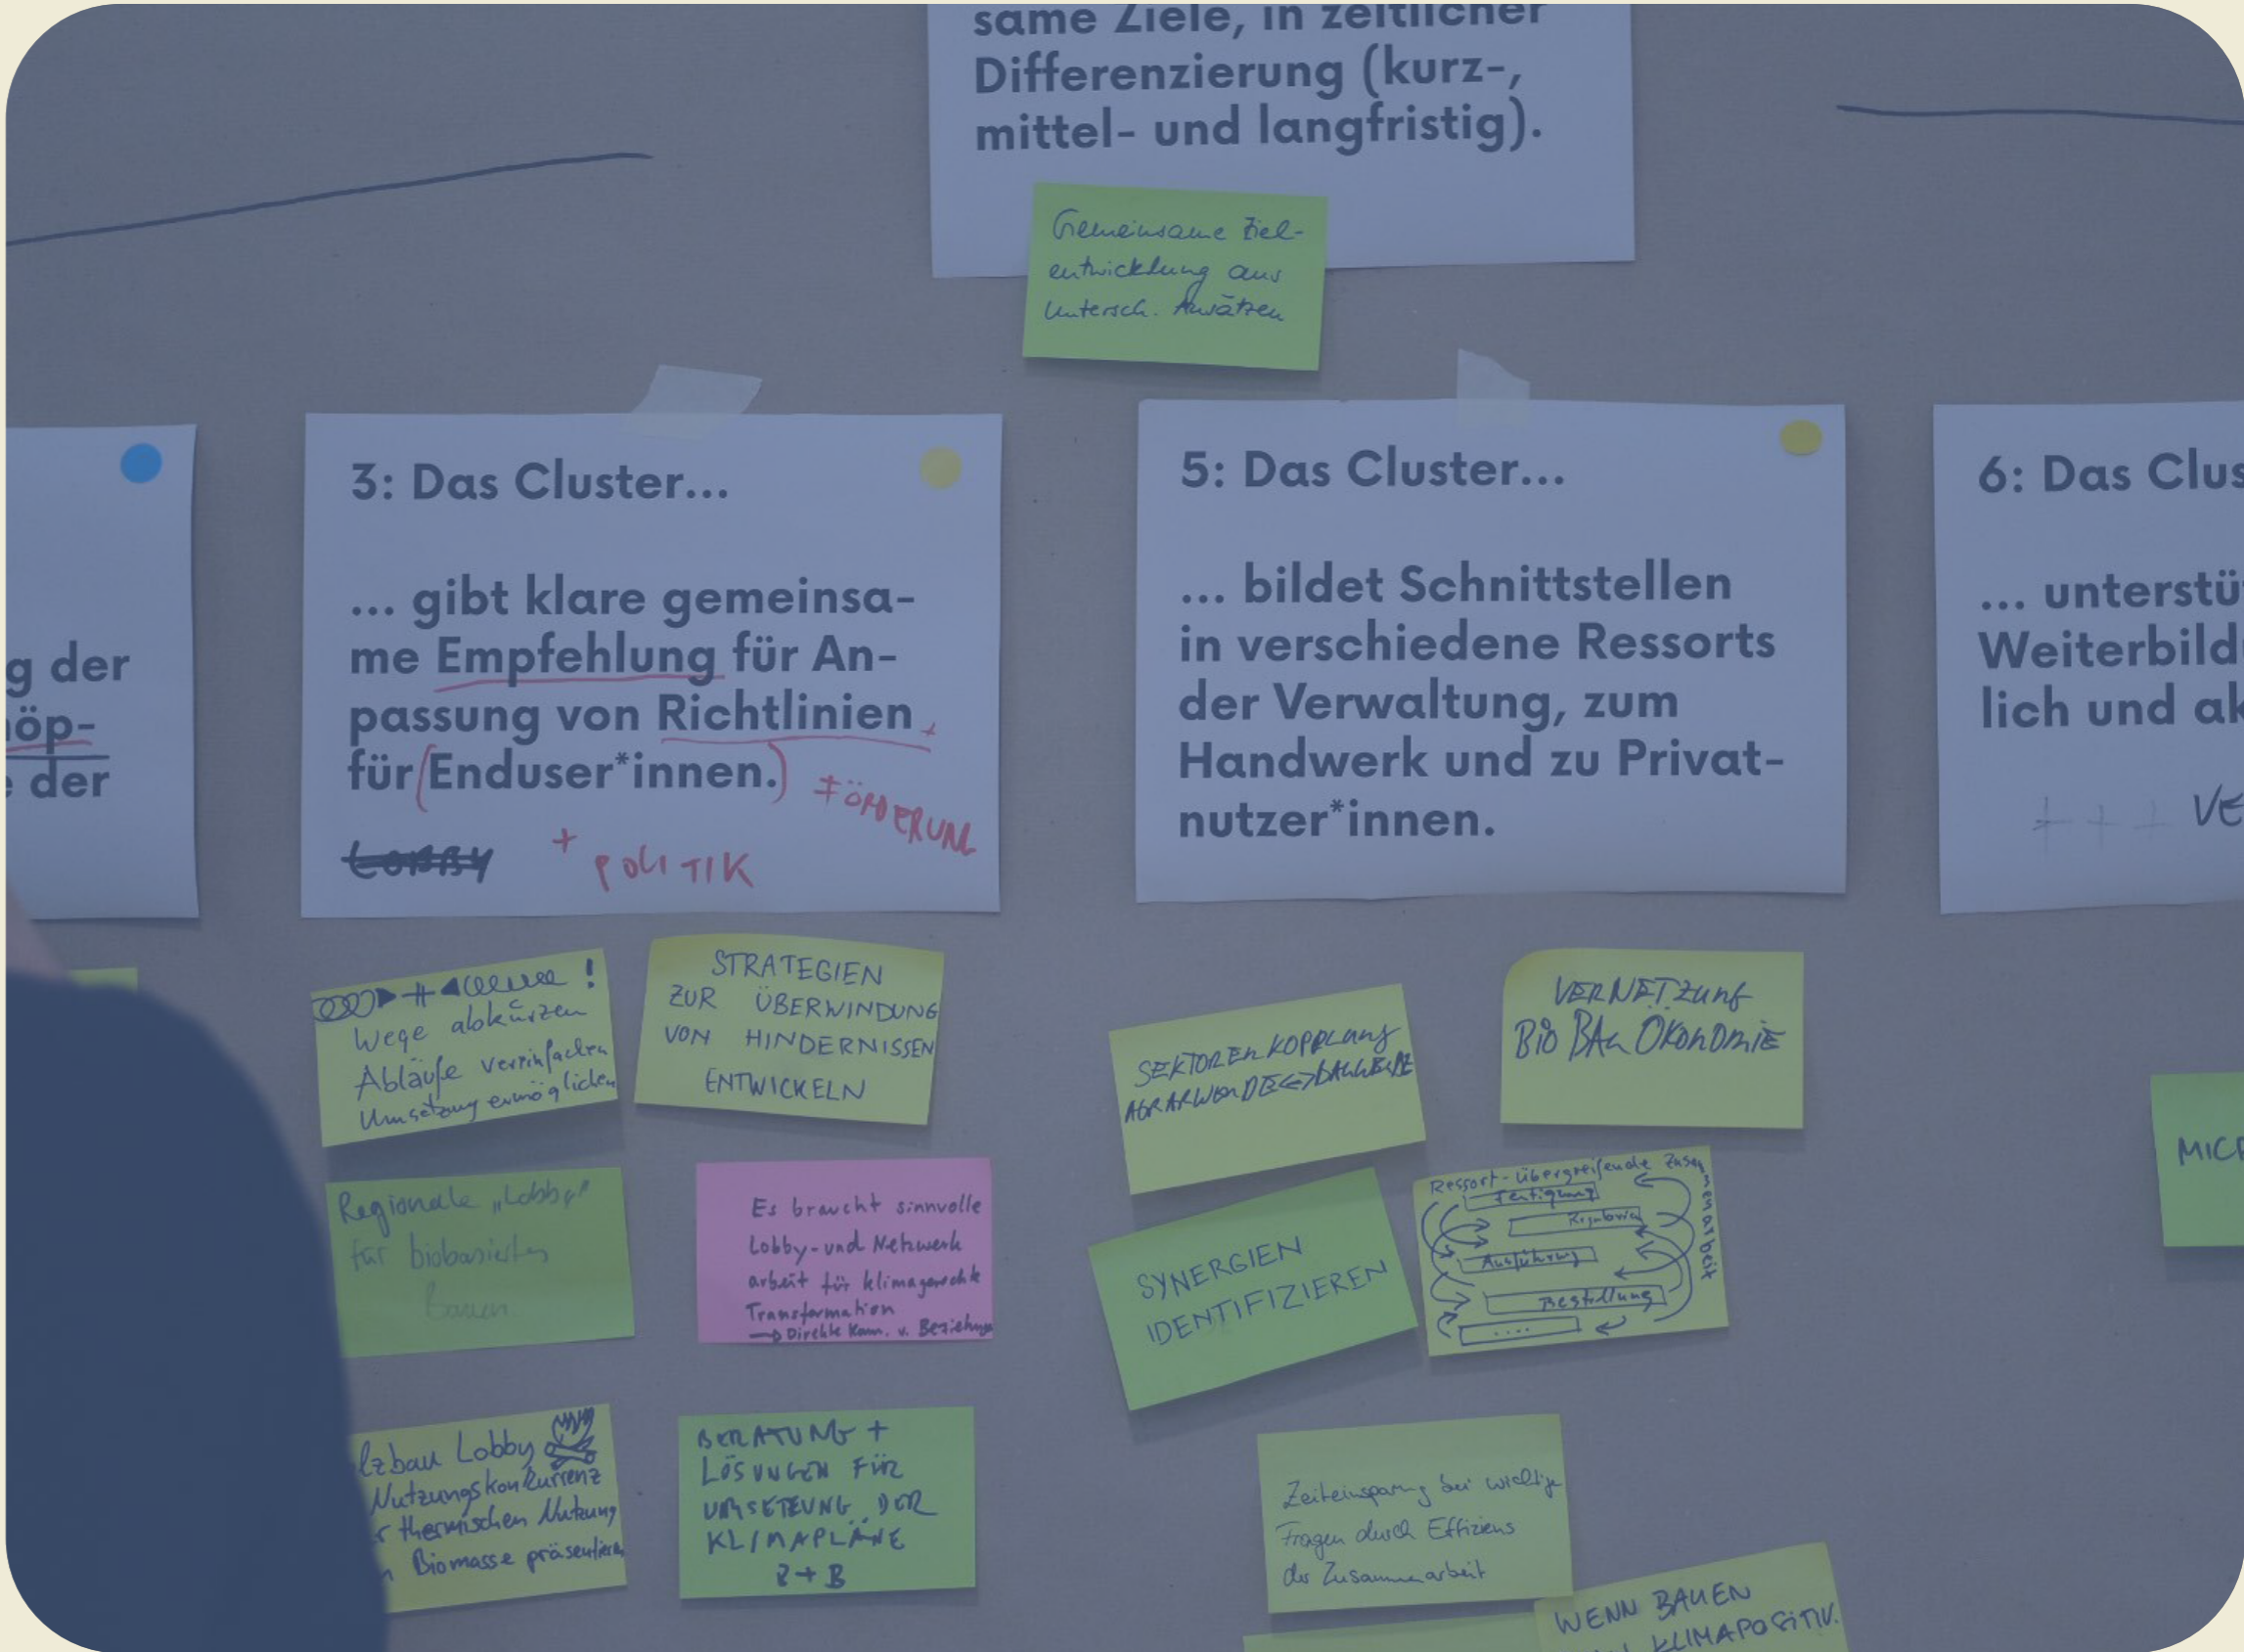 same Ziele, in zeitlicher
Differenzierung (kurz-,
mittel- und langfristig).
Gemeinsame Ziel-
entwicklung aus
untersch. Ansätzen
g der
öp-
der
3: Das Cluster...
... gibt klare gemeinsa-
me Empfehlung für An-
passung von Richtlinien +
für (Enduser*innen.)
FÖRDERUNG
Lobby + POLITIK
5: Das Cluster...
... bildet Schnittstellen
in verschiedene Ressorts
der Verwaltung, zum
Handwerk und zu Privat-
nutzer*innen.
6: Das Clus
... unterstü
Weiterbild
lich und ak
+ + + VE
!
Wege abkürzen
Abläufe vereinfachen
Umsetzung ermöglichen
STRATEGIEN
ZUR ÜBERWINDUNG
VON HINDERNISSEN
ENTWICKELN
Regionale „Lobby"
für biobasiertes
Bauen
Es braucht sinnvolle
Lobby- und Netzwerk
arbeit für klimagerechte
Transformation
→ Direkte Kom. v. Beziehung
lzbau Lobby
Nutzungskonkurrenz
r thermischen Nutzung
n Biomasse präsentieren
BERATUNG +
LÖSUNGEN FÜR
UMSETZUNG DER
KLIMAPLÄNE
B + B
SEKTORENKOPPLUNG
AGRARWENDE <-> BAUWENDE
VERNETZUNG
BIO BAU ÖKONOMIE
SYNERGIEN
IDENTIFIZIEREN
Ressort-übergreifende Zusammenarbeit
Fertigung
Ausführung
Bestellung
....
Zeiteinsparung bei wichtige
Fragen durch Effiziens
der Zusammenarbeit
WENN BAUEN
KLIMAPOSITIV.
MICR